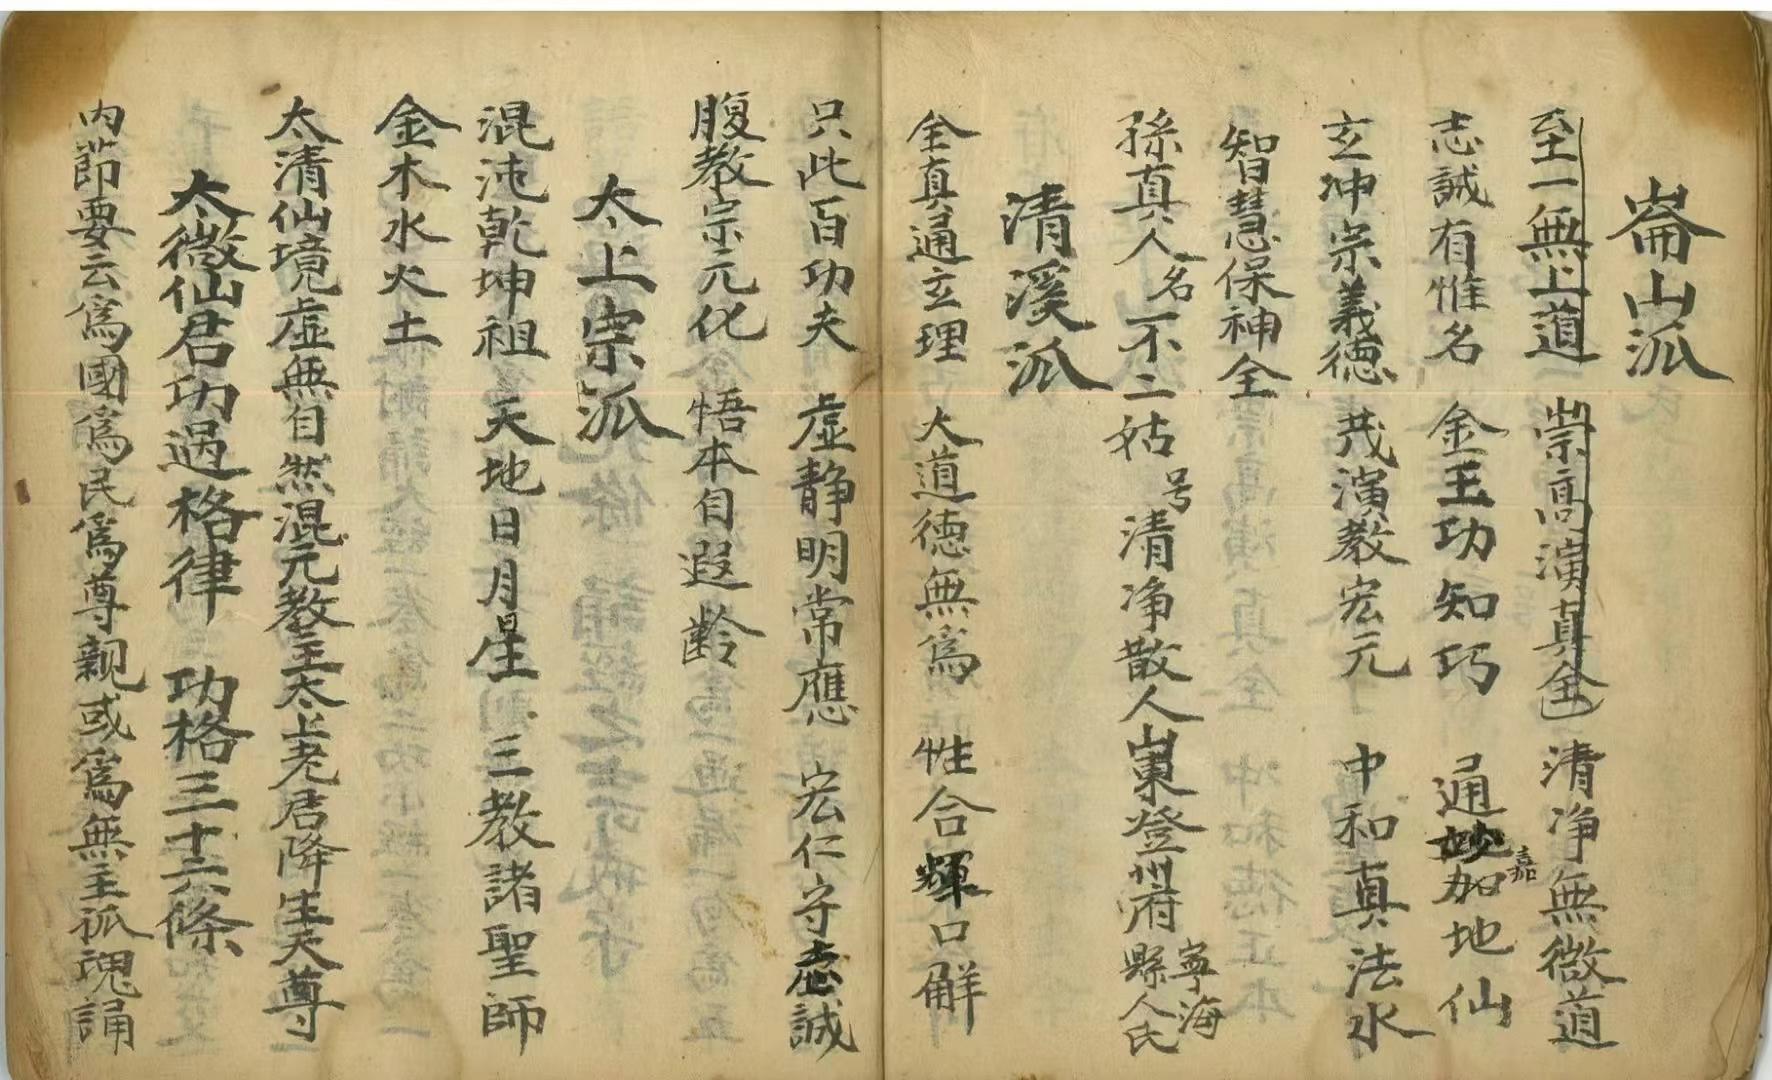 崙山派
至一無上道 崇高演真全 清净無微道
志誠有惟名 金玉功知巧 通妙加嘉地仙
玄冲宗義德 茂演教宏元 中和真法水
智慧保神全
孫真人名一不二姑号清净散人山東登州府寧海縣人氏
清溪派
全真通玄理 大道德無為 性合輝口觧
只此百功夫 虛静明常應 宏仁守志誠
腹教宗元化 悟本自遐齡
太上宗派
混沌乾坤祖 天地日月星 三教諸聖師
金木水火土
太清仙境虛無自然混元教主太上老君降生天尊
太微仙君功過格律 功格三十六條
内節要云為國為民為尊親或為無主孤魂誦